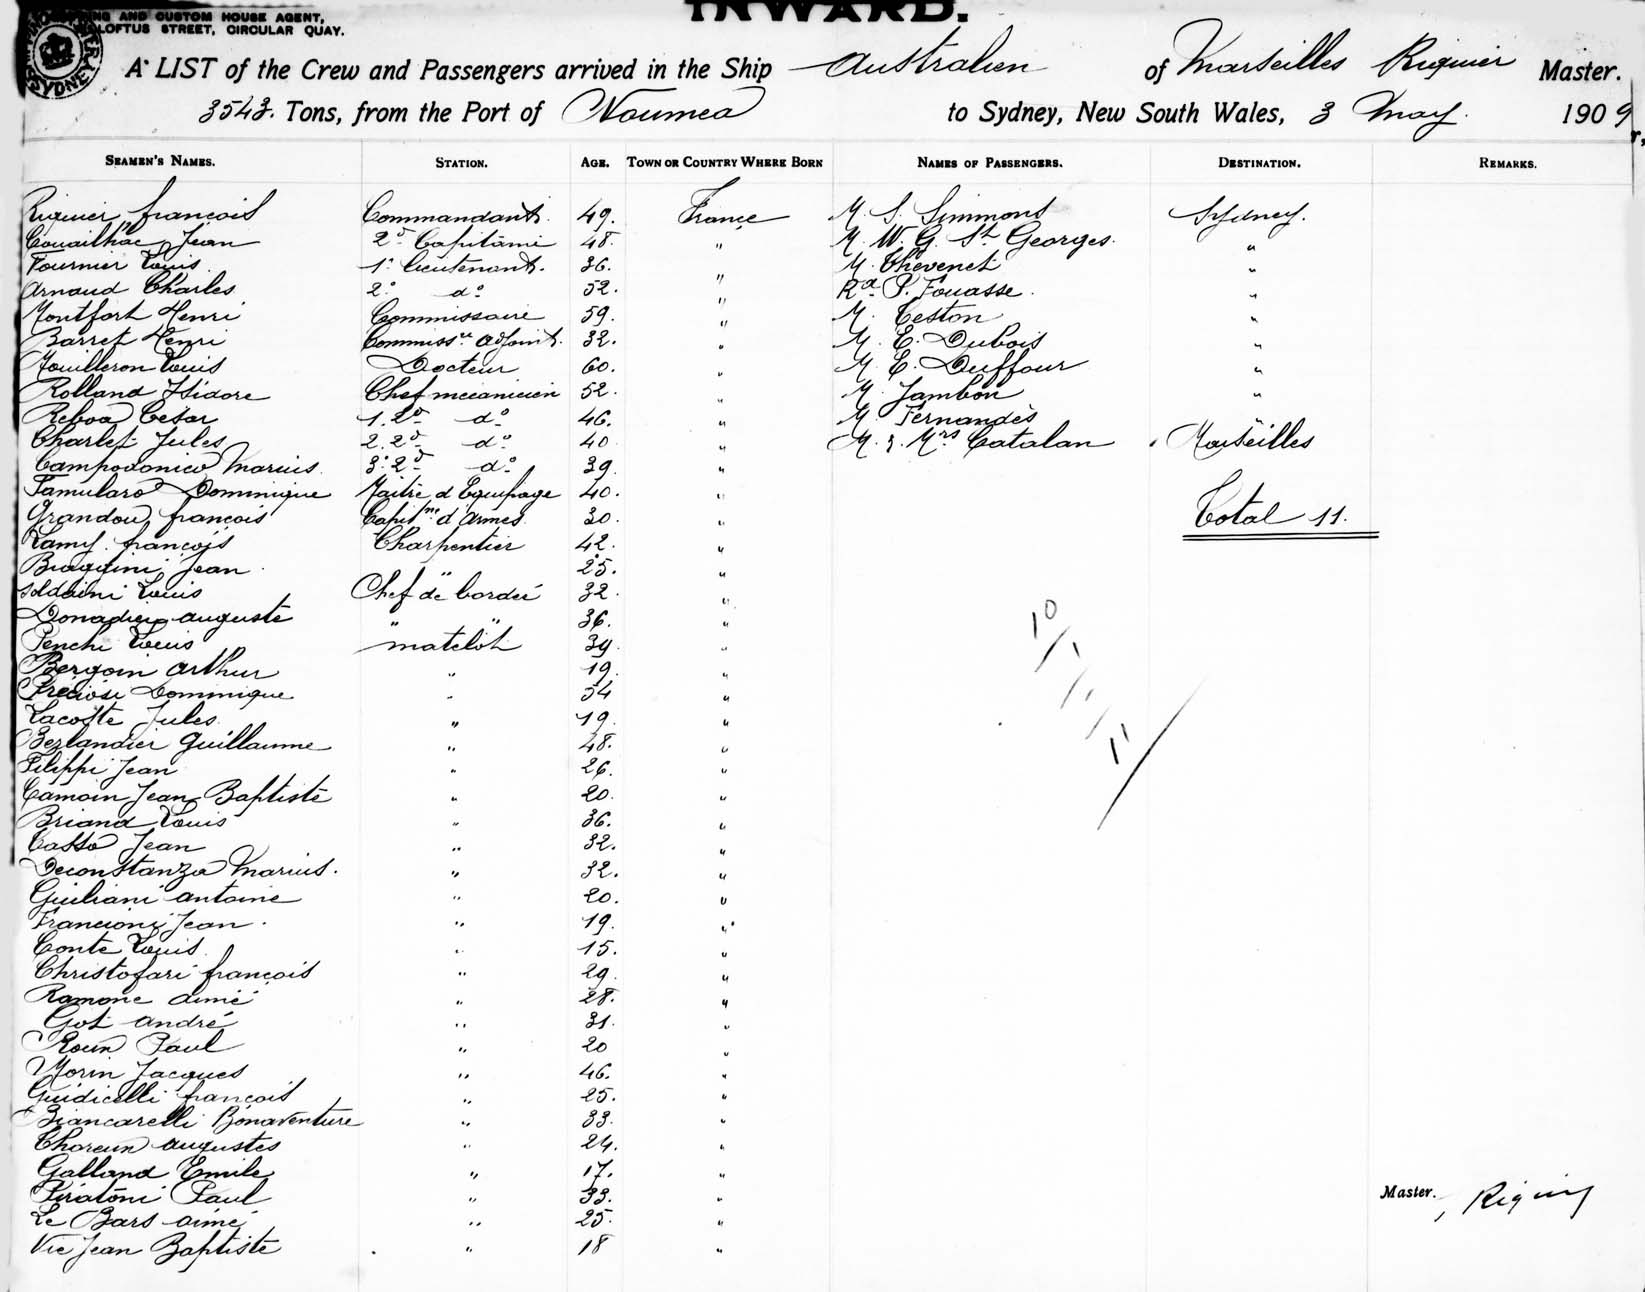 INWARD.
AND CUSTOM HOUSE AGENT,
LOFTUS STREET, CIRCULAR QUAY.
SYDNEY
A LIST of the Crew and Passengers arrived in the Ship Australien of Marseilles Riquier Master.
3543. Tons, from the Port of Noumea to Sydney, New South Wales, 3 May. 1909
SEAMEN'S NAMES. STATION. AGE. TOWN OR COUNTRY WHERE BORN NAMES OF PASSENGERS. DESTINATION. REMARKS.
Riquier françois Commandant. 49. France M. S. Simmons Sydney.
Couailhac Jean 2d. Capitaine 48. " M. W. G. St Georges. "
Fournier Louis 1er lieutenant. 36. " M. Thevenet "
Arnaud Charles 2o do 52. " Rd P. Fouasse. "
Montfort Henri Commissaire 59. " M. Ceston "
Barret Henri Commissre adjoint. 32. " M. E. Dubois "
Mouilleron Louis Docteur 60. " M. E. Duffour "
Rolland Isidore Chef mécanicien 52. " M. Jambon "
Reboa César 1. 2d do 46. " M. Fernandès
Charlet Jules 2. 2d do 40 " M. & Mrs Catalan Marseilles
Campodonico Marius. 3. 2d do 39. "
Famularo Dominique Maitre d'Equipage 40. " Total 11.
Grandou françois Capitne d'armes. 30. "
Lamy françois Charpentier 42. "
Biaggini Jean " 25. "
Soldaini Louis Chef de bordée 32. "
Donadieu auguste " " 36. "
Penchi Louis matelot 39. "
Bergoin arthur " 19. "
Preciosi Dominique " 54 "
Lacoste Jules " 19. "
Berlandier Guillaume " 48. "
Filippi Jean " 26. "
Camoin Jean Baptiste " 20. "
Briand Louis " 36. "
Casso Jean " 32. "
Deconstanza Marius. " 32. "
Giuliani antoine " 20. "
Francioni Jean. " 19. "
Conte Louis " 15. "
Christofari françois " 29. "
Ramone aimé " 28. "
Got andré " 31. "
Roun Paul " 20 "
Morin Jacques " 46. "
Guidicelli françois " 25. "
Biancarelli Bonaventure " 33. "
augustes " 24. "
Galland Emile " 17. "
Piratoni Paul " 33. " Master. Riquier
Le Bars aimé " 25. "
Vic Jean Baptiste " 18 "
10
1
11